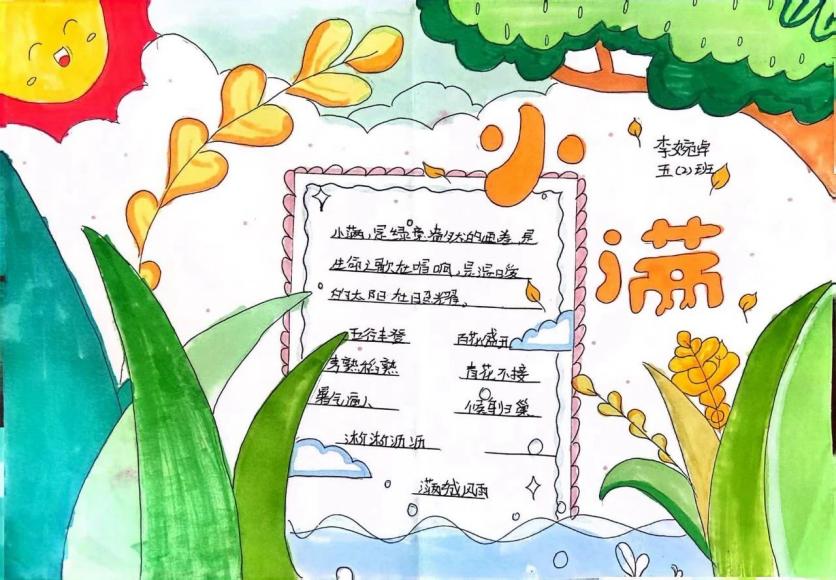 小满
李婉卓
五(2)班
小满,是绿莹潜伏的画卷是
生命之歌在唱响,是温暖
的太阳在照耀。
五谷丰登
百花盛开
麦熟稻熟
青花不接
暑气逼人
候鸟归巢
淅淅沥沥
满城风雨